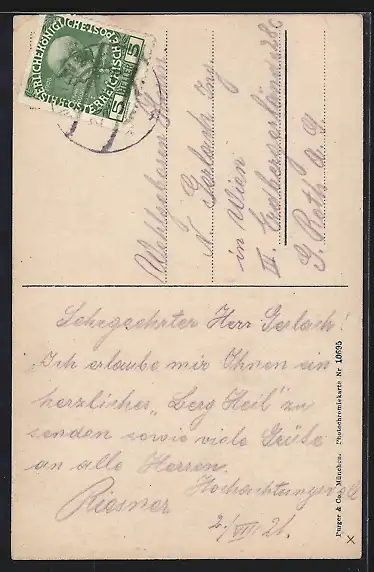 KAISERLICHE KÖNIGLICHE ÖSTERREICHISCHE POST
5 HELLER 5
Wohlgeboren Herrn
N. Gerlach Ing
in Wien
III. Erdbergerlände 28c
G. Roth A. G
Sehrgeehrter Herr Gerlach!
„Ich erlaube mir Ihnen ein
herzliches „Berg Heil" zu
senden sowie viele Grüße
an alle Herren.
Hochachtungsvoll
Riesner
2./VIII. 21.
Purger & Co., München. Photochromiekarte Nr 10695
x